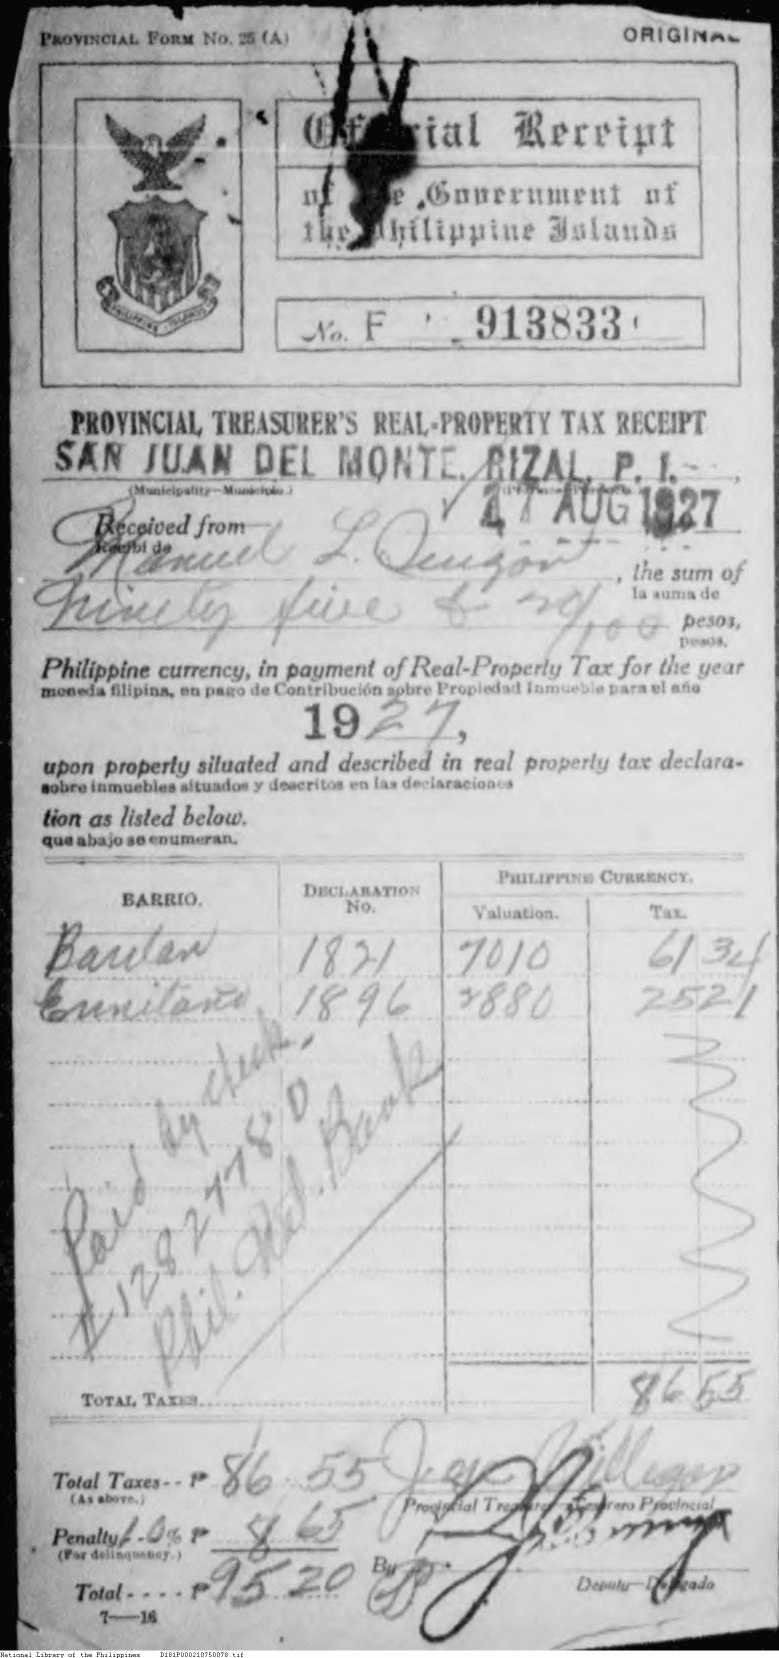 PROVINCIAL FORM NO. 25 (A)
ORIGINAL
Official Receipt
of the Government of
the Philippine Islands
PHILIPPINE ISLANDS
No. F 913833
PROVINCIAL TREASURER'S REAL-PROPERTY TAX RECEIPT
SAN JUAN DEL MONTE, RIZAL, P. I.
(Municipality—Municipio.)
17 AUG 1927
Received from
Recibí de
Manuel L. Quezon
, the sum of
la suma de
Ninety five & 20/100 pesos,
pesos,
Philippine currency, in payment of Real-Property Tax for the year
moneda filipina, en pago de Contribución sobre Propiedad Inmueble para el año
1927,
upon property situated and described in real property tax declara-
sobre inmuebles situados y descritos en las declaraciones
tion as listed below.
que abajo se enumeran.
BARRIO. DECLARATION No. PHILIPPINE CURRENCY.
Valuation. Tax.
1821 7010 61 34
Ermitaño 1896 2880 25 21
Paid by check
# 128277780 D
Phil. Nat. Bank
TOTAL TAXES 86 55
Total Taxes -- ₱ 86 55
(As above.)
Provincial Treasurer—Tesorero Provincial
Penalty 10% ₱ 8 65
(For delinquency.)
Total - - - - ₱ 95 20
By
Deputy—Delegado
7—16
National Library of the Philippines D181P000210750078.tif